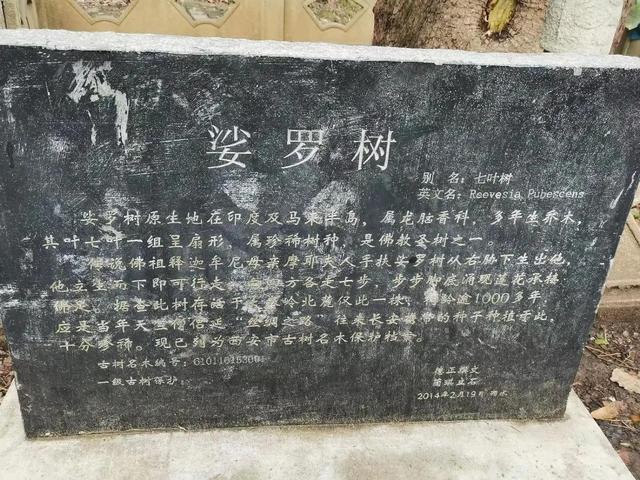 娑罗树
别 名：七叶树
英文名：Reevesia Pubescens
娑罗树原生地在印度及马来半岛，属龙脑香科，多年生乔木，
其叶七叶一组呈扇形，属珍稀树种，是佛教圣树之一。
传说佛祖释迦牟尼母亲摩耶夫人手扶娑罗树从右胁下生出他，
他立生而下即可行走，向四方各走七步，步步脚底涌现莲花承接
佛足。据查此树存活于秦岭北麓仅此一株，树龄逾1000多年，
应是当年天竺僧侣延“丝绸之路”往来长安携带的种子种植于此，
十分珍稀。现已列为西安市古树名木保护档案。
古树名木编号：
一级古树保护：
正撰文
立石
2014年2月19日